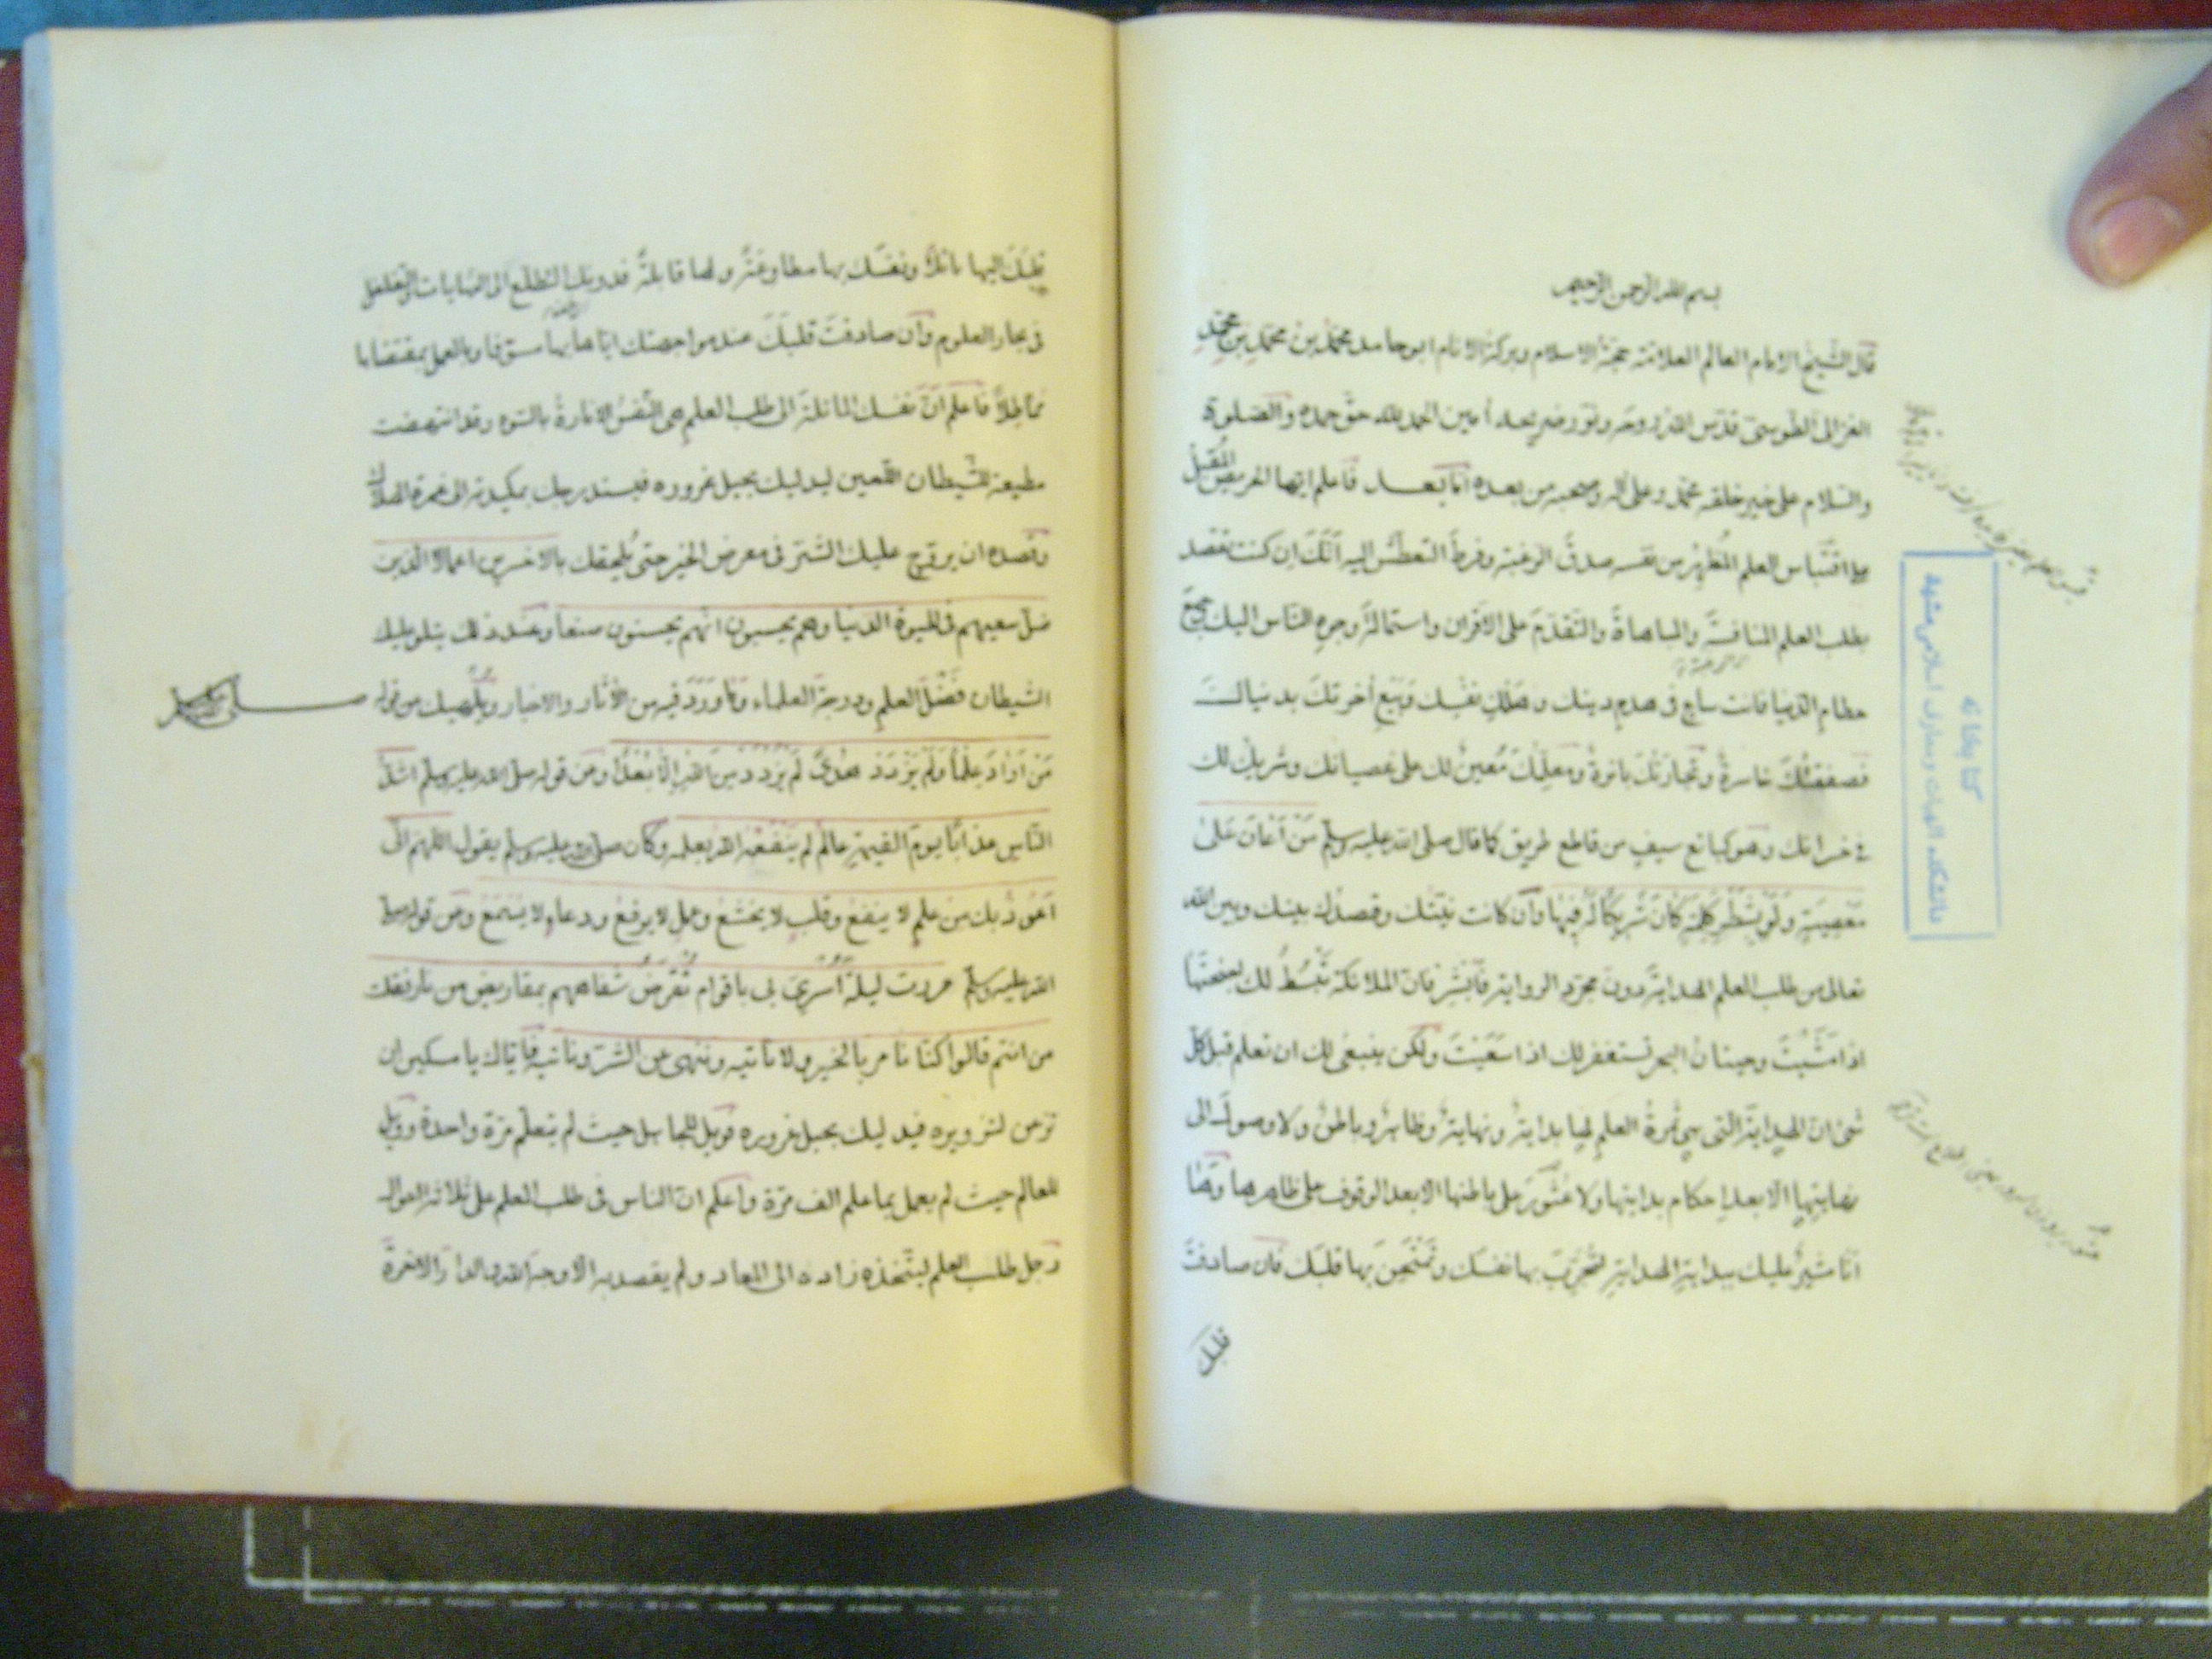 بسم الله الرحمن الرحيم
قال الشيخ الامام العالم العلامة حجة الاسلام وبركة الانام ابو حامد محمد بن محمد بن محمد
الغزالى الطوسى قدس الله روحه ونور ضريحه امين الحمد لله حق حمده والصلوة
والسلام على خير خلقه محمد وعلى اله وصحبه من بعده اما بعد فاعلم ايها الحريص المقبل
على اقتباس العلم المظهر من نفسه صدق الرغبة وفرط التعطش اليه انك ان كنت تقصد
بطلب العلم المنافسة والمباهاة والتقدم على الاقران واستمالة وجوه الناس اليك وجمع
حطام الدنيا فانت ساع فى هدم دينك وهلك نفسك وبيع اخرتك بدنياك
فصفقتك خاسرة وتجارتك بائرة ومعلمك معين لك على عصيانك وشريك لك
فى خسرانك وهو كبائع سيف من قاطع طريق كما قال صلى الله عليه وسلم من اعان على
معصية ولو بشطر كلمة كان شريكا له فيها وان كانت نيتك وقصدك بينك وبين الله
تعالى من طلب العلم الهداية دون مجرد الرواية فابشر فان الملائكة تبسط لك اجنحتها
اذا مشيت وحيتان البحر تستغفر لك اذا سعيت ولكن ينبغى لك ان تعلم قبل كل
شئ ان الهداية التى هى ثمرة العلم لها بداية ونهاية وظاهر وباطن ولا وصول الى
نهايتها الا بعد احكام بدايتها ولا عثور على باطنها الا بعد الوقوف على ظاهرها وها
انا مشير عليك ببداية الهداية لتجرب بها نفسك وتمتحن بها قلبك فان صادفت
قلبك
كتابخانه
دانشكده الهيات ومعارف اسلامى مشهد
قلبك اليها مائلا ونفسك بها مطاوعة ولها قابلة فدونك التطلع الى النهايات والتغلغل
فى بحار العلوم وان صادفت قلبك عند مواجهتك اياها بها مسوفا وبالعمل بمقتضاها
مماطلا فاعلم ان نفسك المائلة الى طلب العلم هى النفس الامارة بالسوء وقد انتهضت
مطيعة للشيطان اللعين ليدليك بحبل غروره فيستدرجك بمكيدته الى غمرة الهلاك
وقصده ان يروج عليك الشر فى معرض الخير حتى يلحقك بالاخسرين اعمالا الذين
ضل سعيهم فى الحيوة الدنيا وهم يحسبون انهم يحسنون صنعا وعند ذلك يتلو عليك
الشيطان فضل العلم ودرجة العلماء وما ورد فيه من الأثار والاخبار ويلهيك من قوله
من ازداد علما ولم يزدد هدى لم يزدد من الله الا بعدا ومن قوله صلى الله عليه وسلم اشد
الناس عذابا يوم القيمة عالم لم ينفعه الله بعلمه وكان صلى الله عليه وسلم يقول اللهم انى
اعوذ بك من علم لا ينفع وقلب لا يخشع وعمل لا يرفع ودعاء لا يسمع ومن قوله صلى
الله عليه وسلم مررت ليلة اسرى بى باقوام تقرض شفاههم بمقاريض من نار فقلت
من انتم قالوا كنا نامر بالخير ولا ناتيه وننهى عن الشر وناتيه فاياك يا مسكين ان
تذعن لتزويره فيدليك بحبل غروره فويل للجاهل حيث لم يتعلم مرة واحدة وويل
للعالم حيث لم يعمل بما علم الف مرة واعلم ان الناس فى طلب العلم على ثلاثة احوال
رجل طلب العلم ليتخذه زاده الى المعاد ولم يقصد به الا وجه الله والدار الاخرة